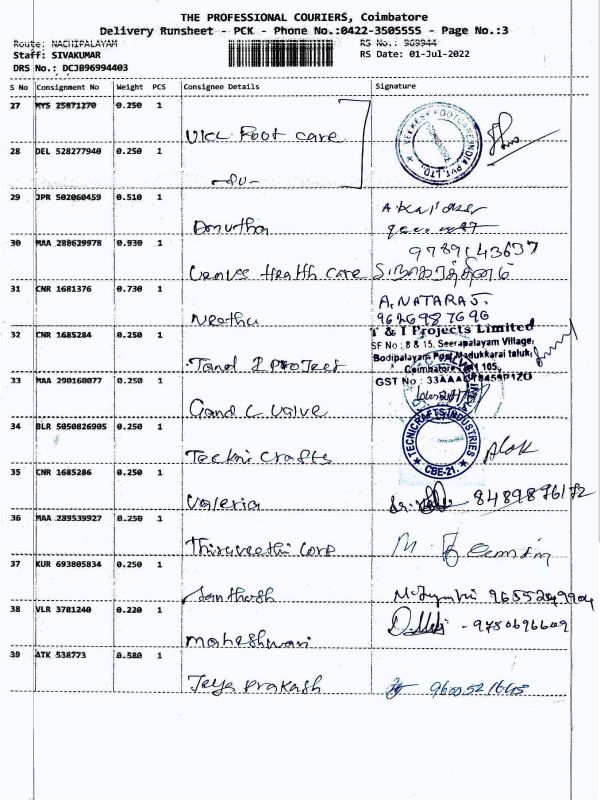 THE PROFESSIONAL COURIERS, Coimbatore
Delivery Runsheet - PCK - Phone No.:0422-3505555 - Page No.:3
Route: NACHIPALAYAM
RS No.: 969944
Staff: SIVAKUMAR
RS Date: 01-Jul-2022
DRS No.: DCJB96994403
S No Consignment No Weight PCS Consignee Details Signature
27 MYS 25871270 0.250 1
VKL Foot care
28 DEL 528277940 0.250 1
29 JPR 502060459 0.510 1
Anutha
30 MAA 280629978 0.930 1
9789143637
Venus Health care
31 CNR 1681376 0.730 1
A. NATARAJ.
Neethu 9626987690
32 CNR 1685284 0.250 1
T & I Projects Limited
SF No : 8 & 15, Seerapalayam Village,
Bodipalayam Post, Madukkarai taluk,
Tand I Project
33 MAA 290160077 0.250 1
GST No :
G and C Valve
34 BLR 5050826905 0.250 1
TECNICRAFTS INDUSTRIES
CBE-21.
Techni Crafts
Alok
35 CNR 1685286 0.250 1
Valeria 8489876172
36 MAA 289539927 0.250 1
Thiruveethi Corp
37 KUR 693805834 0.250 1
Santhosh
38 VLR 3781240 0.220 1
Maheshwari 9750696609
39 ATK 538773 0.580 1
Jeya Prakash